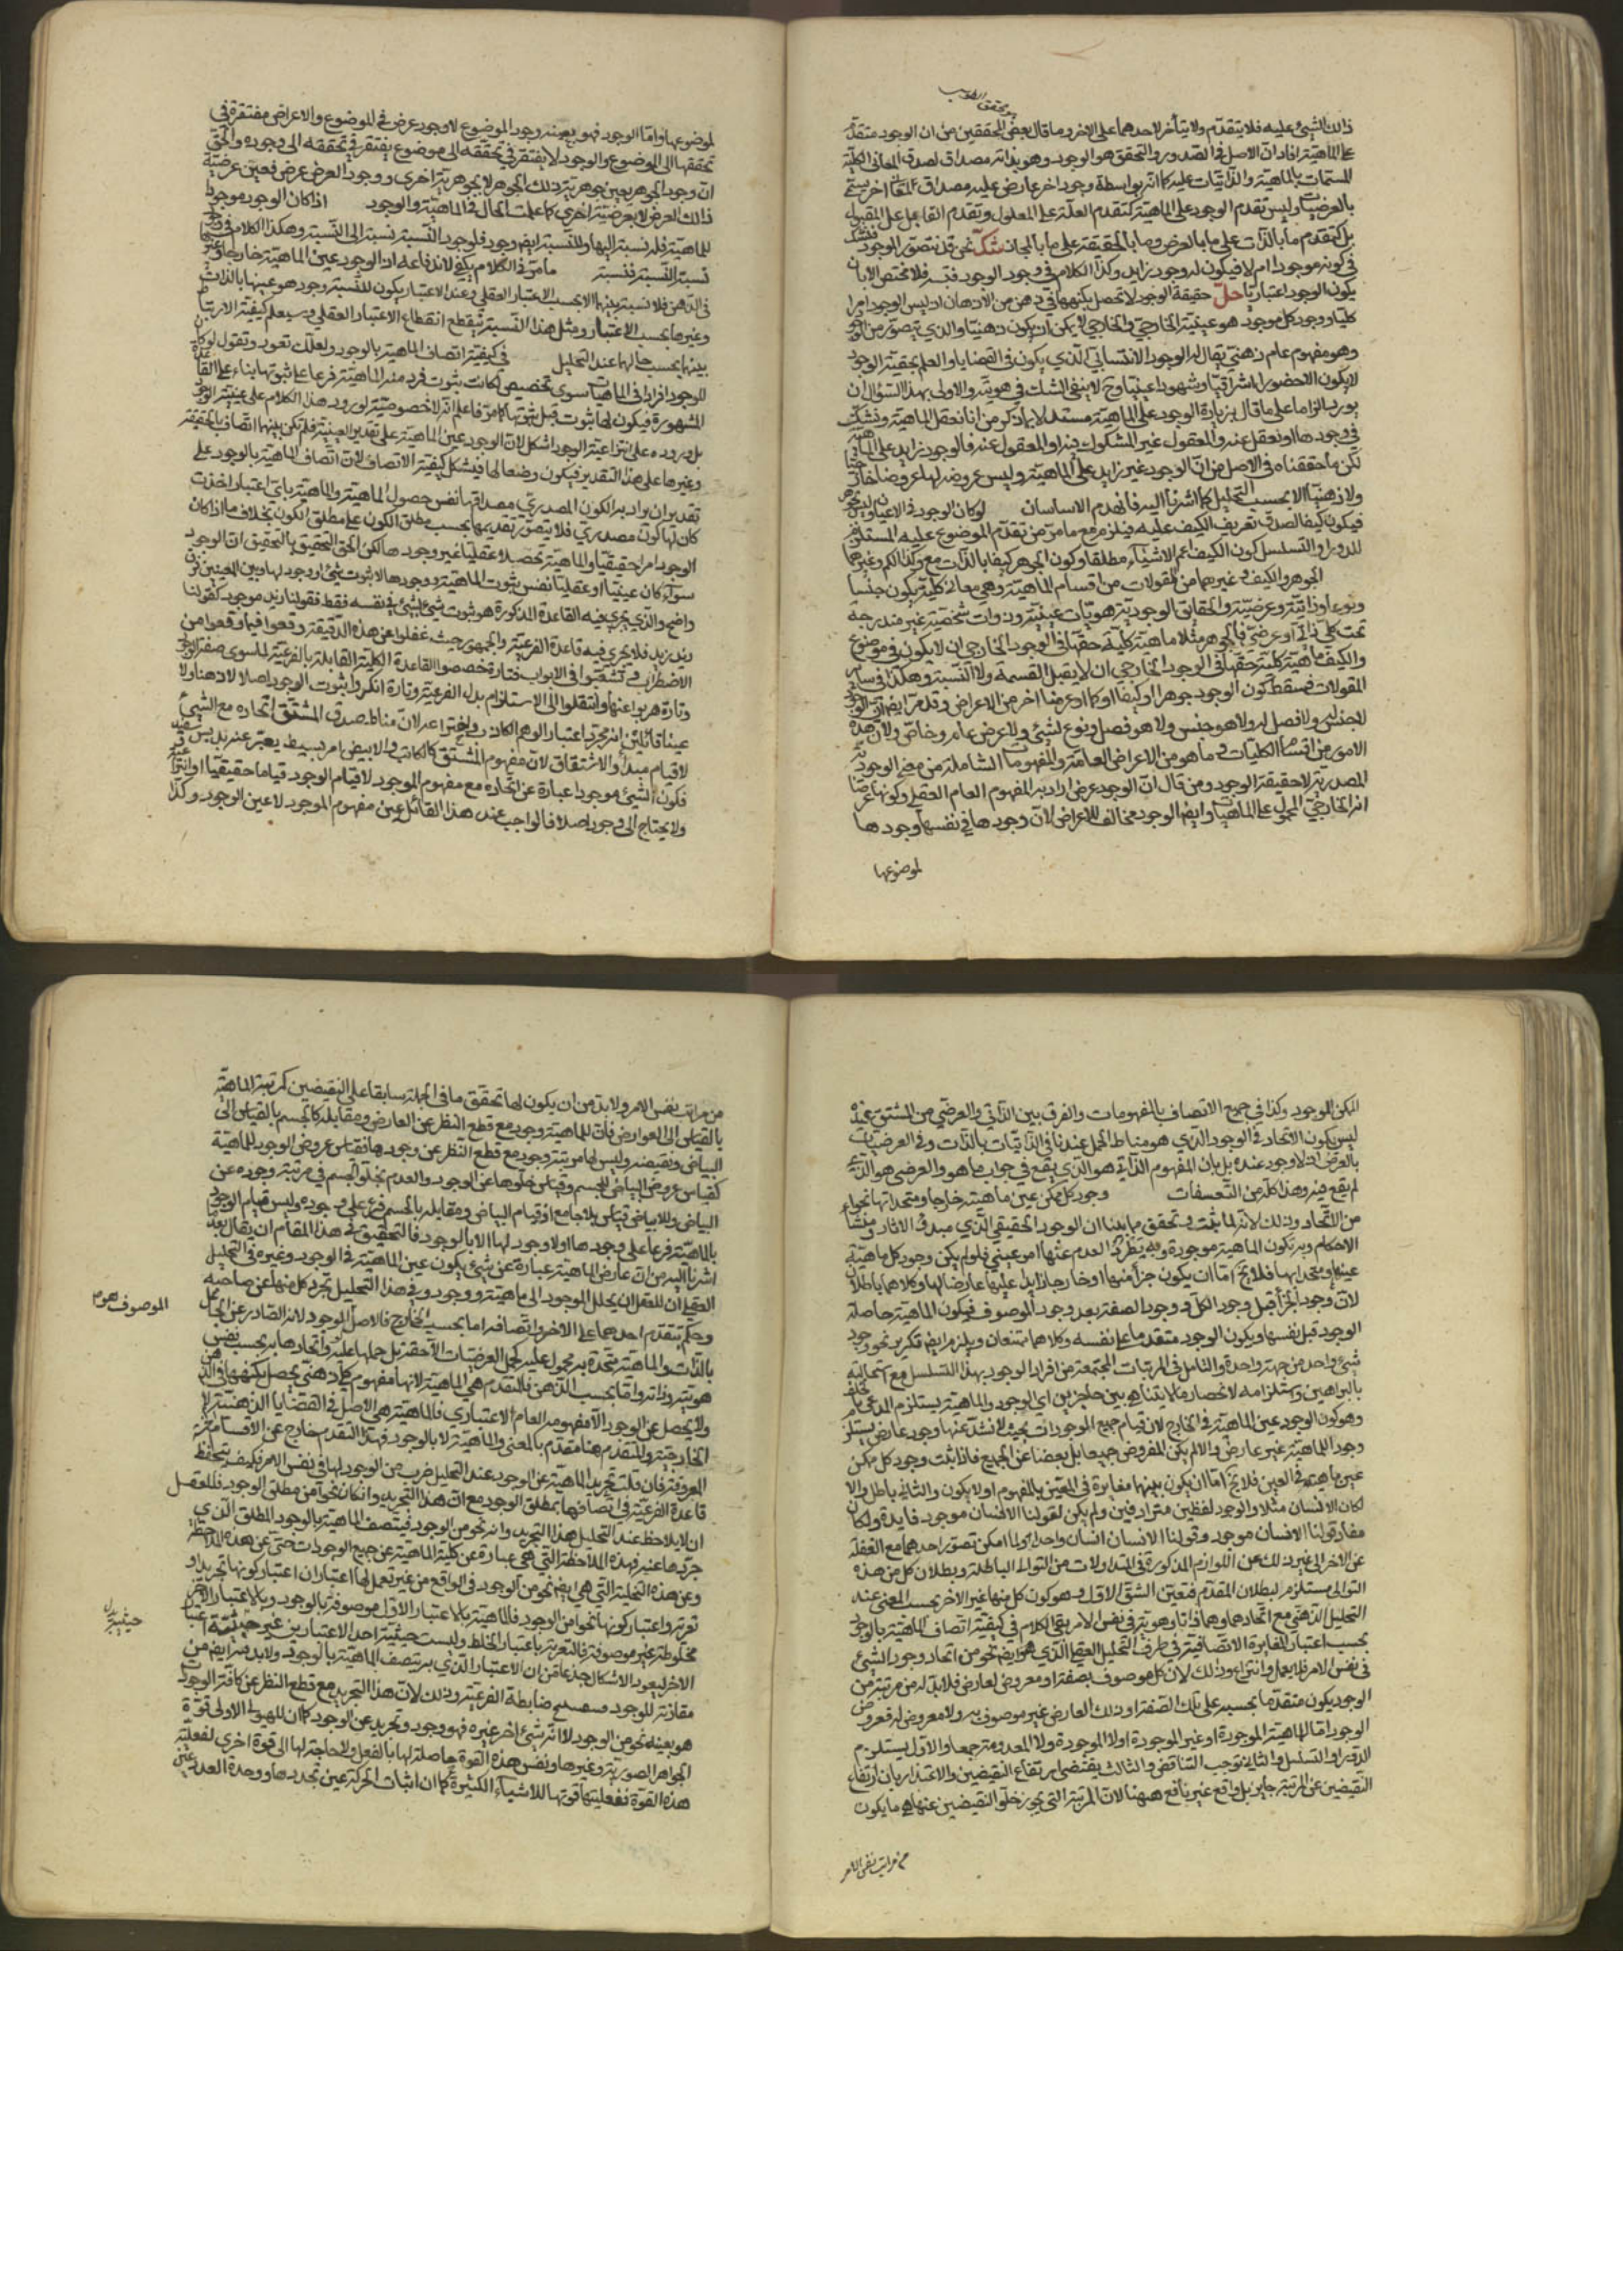 ذلك الشيئ عليه فلا يتقدّم ولا يتأخر لاحدهما على الاخر وما قال بعض المحققين من ان الوجود متقدّم
على الماهيّة افاد ان الاصل فى الصّدور والتحقق هو الوجود وهو بذاته مصداق لصدق المعانى الكليّة
المسمّات بالماهيّة والذّاتيات عليه كما انّه بواسطة وجود اخر عارض عليه مصداق لمعان اخر يسمّى
بالعرضيات وليس تقدم الوجود على الماهيّة كتقدم العلّة على المعلول وتقدم القابل على المقبول
بل كتقدم ما بالذّات على ما بالعرض وما بالحقيقة على ما بالمجاز شكّ نحن قد نتصوّر الوجود ونشكّ
فى كونه موجودا ام لا فيكون له وجود زايد وكذا الكلام فى وجود الوجود فيتسـ فلا مخلص الا بان
يكون الوجود اعتباريّا حلّ حقيقة الوجود لا تحصل بكنهها فى ذهن من الاذهان اذ ليس الوجود امرا
كليّا ووجود كل موجود هو عينيّته الخارجى والخارجى لا يمكن ان يكون ذهنيّا والذى يتصوّر من الوجود
وهو مفهوم عام ذهنىّ يقال له الوجود الانتسابى الذى يكون فى القضايا والعلم بحقيقة الوجود
لا يكون الا حضورا اشراقيّا وشهودا عينيّا وح لا يبقى الشك فى هويّته والاولى بهذا السّؤال ان
يورد الزاما على ما قال بزيادة الوجود على الماهيّة مستدلا بما ذكر من انا نعقل الماهيّة ونشكّ
فى وجودها او نعقل عنه والمعقول غير المشكوك فيه او المعقول عنه فالوجود زايد على الماهيّة
لكن ما حققناه فى الاصل من انّ الوجود غير زايد على الماهيّة وليس عروضه لها عروضا خارجيّا
ولا ذهنيّا الا بحسب التحليل كما اشرنا اليه فانهدم الاساسان لو كان الوجود فى الاعيان وليس بجوهر
فيكون كيفا لصدق تعريف الكيف عليه فيلزم مع ما مرّ من تقدّم الموضوع عليه المستلزم
للدور او التسلسل كون الكيف اعم الاشياء مطلقا وكون الجوهر كيفا بالذّات مع وكذا الكم وغيرهما
الجوهر والكيف وغيرهما من المقولات من اقسام الماهيّة وهى معان كليّة يكون جنسا
ونوعا وذاتيّة وعرضيّة والحقايق الوجوديّة هويّات عينيّة وذوات شخصيّة غير مندرجة
تحت كلّى ذاتى او عرضى فالجوهر مثلا ماهيّة كليّة حقّها فى الوجود الخارجى ان لا يكون فى موضوع
والكيف ماهيّة كليّة حقّها فى الوجود الخارجى ان لا يقبل القسمة ولا النّسبة وهكذا فى ساير
المقولات فسقط كون الوجود جوهرا او كيفا او كمّا او عرضا اخر من الاعراض وقد مر ايضا انّ الوجود
لا جنس له ولا فصل له ولا هو جنس ولا هو فصل ونوع لشيئ ولا عرض عام وخاصّ ولانّ هذه
الامور من اقسام الكليات وما هو من الاعراض العامّة والمفهومات الشاملة هو معنى الوجوديّة
المصدريّة لا حقيقة الوجود ومن قال انّ الوجود عرض اراد به المفهوم العام العقلى وكونه عرضا
انه الخارج المحمول على الماهيّات وايضا الوجود مخالف للاعراض لانّ وجودها فى نفسها وجودها
لموضوعها
لموضوعها واما الوجود فهو بعينه وجود الموضوع لا وجود عرض فى الموضوع والاعراض مفتقرة فى
تحققها الى الموضوع والوجود لا يفتقر فى تحققه الى موضوع بل يفتقر فى تحققه الى وجوده والحق
انّ وجود الجوهر بعين جوهريّة ذلك الجوهر لا بجوهريّة اخرى ووجود العرض عرض فعين عرضيّة
ذلك العرض لا بعرضيّة اخرى كما علمت الحال فى الماهيّة والوجود اذا كان الوجود موجودا
للماهيّة فله نسبة اليها وللنّسبة ايضا وجود فلوجود النّسبة نسبة الى النّسبة وهكذا الكلام فى وجود
نسبة النّسبة فتتسـ ما مرّ فى الكلام يكفى لاندفاعه اذ الوجود عين الماهيّة خارجا وغيرها
فى الذّهن فلا نسبة بينهما الا بحسب الاعتبار العقلى وعند الاعتبار يكون للنّسبة وجود هو عينها بالذّات
وغيرها بحسب الاعتبار ومثل هذا التسلسل ينقطع بانقطاع الاعتبار العقلى وسيعلم كيفيّة الارتباط
بينهما بحسب حالها عند التحليل فى كيفيّة اتصاف الماهيّة بالوجود ولعلّك تعود وتقول لو كان
للوجود افراد فى الماهيّات سوى حصص لكانت ثبوت فرد منه للماهيّة فرعا على ثبوتها بناء على القاعدة
المشهورة فيكون لها ثبوت قبل ثبوتها كما مرّ فاعلم انّه لا خصوصيّة لورود هذا الكلام على عينيّة الوجود
بل وروده على انتزاعيّة الوجود اشكل لانّ الوجود عين الماهيّة على تقدير العينيّة فلم تكن بينهما اتصاف بالحقيقة
وغيرها على هذا التقدير فيكون وصفا لها فيشكل كيفيّة الاتصاف لانّ اتّصاف الماهيّة بالوجود على
تقدير ان يراد به الكون المصدرى مصداقه نفس حصول الماهيّة والماهيّة باىّ اعتبار اخذت
كان لها كون مصدرىّ فلا يتصوّر تقدّمها بحسب مطلق الكون على مطلق الكون بخلاف ما اذا كان
الوجود امرا حقيقيّا والماهيّة تحصّلا عقليّا غير وجودها لكن الحق الحقيق بالتحقيق انّ الوجود
سواء كان عينيّا او عقليّا نفس ثبوت الماهيّة ووجودها لا ثبوت شيئ او وجوده لها وبين المعنيين فرق
واضح والذى يجرى فيه القاعدة المذكورة هو ثبوت شيئ لشيئ لا ثبوت شيئ فى نفسه فقط فقولنا زيد موجود كقولنا
زيد زيد فلا يجرى فيه قاعدة الفرعيّة والجمهور حيث غفلوا عن هذه الدّقيقة وقعوا فيما وقعوا من
الاضطراب وتشعّبوا فى الابواب فتارة خصصوا القاعدة الكليّة القائلة بالفرعيّة لما سوى صفة الوجود
وتارة هربوا عنها وانتقلوا الى الاستلزام بدل الفرعيّة وتارة انكروا ثبوت الوجود اصلا لا ذهنا ولا
عينا قائلين انّه مجرّد اعتبار الوهم الكاذب واختراعه لانّ مناط صدق المشتقّ اتّحاده مع الشيئ
لا قيام مبدأ الاشتقاق لانّ مفهوم المشتق كالكاتب والابيض امر بسيط يعبّر عنه بدبير وسفيد
فكون الشيئ موجودا عبارة عن اتّحاده مع مفهوم الموجود لا قيام الوجود قياما حقيقيّا او انتزاعيّا
ولا يحتاج الى وجود اصلا فالواجب عند هذا القائل عين مفهوم الموجود لا عين الوجود وكذا
الممكن الموجود وكذا فى جميع الاتّصاف بالمفهومات والفرق بين الذّاتى والعرضى من المشتق عنده
ليس بكون الاتّحاد فى الوجود الذى هو مناط الحمل عندنا فى الذّاتيّات بالذّات وفى العرضيات
بالعرض اذ لا وجود عنده بل بان المفهوم الذّاتى هو الذى يقع فى جواب ما هو والعرضى هو الذى
لم يقع فيه وهذا كلّه من التّعسفات وجود كل ممكن عين ماهيّته خارجا ومتّحد بها نحوا
من الاتّحاد وذلك لانّه لمّا ثبت وتحقق ما بيّنا ان الوجود الحقيقى الذى مبدء الاثار ومنشأ
الاحكام وبه تكون الماهيّة موجودة وبه يطرد العدم عنها امر عينى فلو لم يكن وجود كل ماهيّة
عينها ومتّحدا بها فلا يخ امّا ان يكون جزأ منها او خارجا زايدا عليها عارضا لها وكلاهما باطلان
لانّ وجود الجزأ قبل وجود الكل ووجود الصّفة بعد وجود الموصوف فيكون الماهيّة حاصلة
الوجود قبل نفسها ويكون الوجود متقدما على نفسه وكلاهما ممتنعان ويلزم ايضا تكرّر نحو وجود
شيئ واحد من جهة واحدة والتّسلسل فى المرتبات المجتمعة من افراد الوجود بهذا التسلسل مع استحالته
بالبراهين واستلزامه لانحصار ما لا يتناهى بين حاصرين اى الوجود والماهيّة يستلزم المدعى بالخلف
وهو كون الوجود عين الماهيّة فى الخارج لانّ قيام جميع الوجودات بحيث لا يشذّ عنها وجود عارض يستلزم
وجود الماهيّة غير عارض والا لم يكن المفروض جميعا بل بعضا عن الجميع فاذا ثبت وجود كل ممكن
عين ماهيّته فى العين فلا يخ امّا ان يكون بينهما مغايرة فى المعنى والمفهوم او لا يكون والثانى باطل والا
لكان الانسان مثلا والوجود لفظين مترادفين ولم يكن لقولنا الانسان موجود فايدة ولكان
مفاد قولنا الانسان موجود وقولنا الانسان انسان واحدا ولما امكن تصوّر احدهما مع الغفلة
عن الاخر الى غير ذلك من اللّوازم المذكورة فى المتداولات من التوالى الباطلة وبطلان كل من هذه
التوالى مستلزم لبطلان المقدّم فتعيّن الشقّ الاوّل وهو كون كل منهما غير الاخر بحسب المعنى عند
التحليل الذّهنى مع اتّحادهما ذاتا وهويّة فى نفس الامر بقى الكلام فى كيفيّة اتصاف الماهيّة بالوجود
بحسب اعتبار المغايرة الاتّصافيّة فى ظرف التحليل العقلى الذى هو ايضا نحو من انحاء وجود الشيئ
فى نفس الامر بلا تعمّل وانتزاع وذلك لانّ كل موصوف بصفة او معروض لعارض فلا بدّ له من مرتبة من
الوجود يكون متقدّما بحسبه على تلك الصّفة او ذلك العارض غير موصوف به ولا معروض له فعروض
الوجود امّا للماهيّة الموجودة او غير الموجودة او لا الموجودة ولا المعدومة جميعا والاوّل يستلزم
الدّور او التسلسل والثانى يوجب التناقض والثالث يقتضى ارتفاع النقيضين والاعتذار بان ارتفاع
النّقيضين عن المرتبة جايز بل واقع غير نافع هيهنا لانّ المرتبة التى يجوز خلوّ النقيضين عنها هى ما يكون
من مراتب نفس الامر
من مراتب نفس الامر ولا بدّ من ان يكون لها تحقّق ما فى الجملة سابقا على النقيضين كمرتبة الماهيّة
بالقياس الى العوارض فانّ للماهيّة وجود مع قطع النظر عن العارض ومقابله كالجسم بالقياس الى
البياض ونقيضه وليس لها مرتبة وجود مع قطع النظر عن وجودها فقياس عروض الوجود للماهيّة
كقياس عروض البياض للجسم وقياس خلوّها عن الوجود والعدم بخلوّ الجسم فى مرتبة وجوده عن
البياض واللابياض قياس بلا جامع اذ قيام البياض ومقابله بالجسم فرع على وجوده وليس قيام الوجود
بالماهيّة فرعا على وجودها اذ لا وجود لها الا بالوجود فالتحقيق فى هذا المقام ان يقال بعد ما
اشرنا اليه من انّ عارض الماهيّة عبارة عن شيئ يكون عين الماهيّة فى الوجود وغيره فى التحليل
العقلى ان للعقل ان يحلل الموجود الى ماهيّة ووجود وفى هذا التحليل تجرّد كل منهما عن صاحبه
ويحكم بتقدم احدهما على الاخر واتّصافه به اما بحسب الخارج فالاصل الموجود لانّه الصّادر عن الجاعل
بالذّات والماهيّة متّحدة به محمول عليه لا كحمل العرضيّات اللّاحقة بل حملها عليه واتّحادها به بحسب نفس
هويّته وذاته وامّا بحسب الذّهن فالمتقدم هى الماهيّة لانها مفهوم كلّى ذهنى يحصل بكنهها فى الذّهن
ولا يحصل من الوجود الا مفهومه العام الاعتبارى فالماهيّة هى الاصل فى القضايا الذّهنيّة لا
الخارجيّة والتّقدم هنا تقدم بالمعنى والماهيّة لا بالوجود فهذا التقدم خارج عن الاقسام الخمسة
المعروفة فان قلت تجريد الماهيّة عن الوجود عند التحليل ضرب من الوجود لها فى نفس الامر فكيف يتحفظ
قاعدة الفرعيّة فى اتصافها بمطلق الوجود مع انّ هذا التجريد وان كان نحوا من مطلق الوجود فللعقل
ان لا يلاحظ عند التحليل هذا التجريد وانه نحو من الوجود فيتّصف الماهيّة بالوجود المطلق الذى
جرّدها عنه فهذه الملاحظة التى هى عبارة عن تخلية الماهيّة عن جميع الوجودات حتى عن هذه الملاحظة
وعن هذه التخلية التى هى ايضا نحو من الوجود فى الواقع من غير تعمّل لها اعتباران اعتبار كونها تجريدا و
تعرية واعتبار كونها نحوا من الوجود فالماهيّة بالاعتبار الاوّل موصوفة بالوجود وبالاعتبار الاخر
مخلوطة غير موصوفة فالتعرية باعتبار والخلط باعتبار وليست حيثيّة احد الاعتبارين غير حيثيّة اعتبار
الاخر ليعود الاشكال جذعا من انّ الاعتبار الذى به يتصف الماهيّة بالوجود ولا بد فيه ايضا من
مقارنة للوجود فتنفسخ ضابطة الفرعيّة وذلك لانّ هذا التجريد مع قطع النظر عن كافّة الوجودات
هو بعينه نحو من الوجود لا انّه شيئ اخر غيره فهو وجود وتجريد عن الوجود كما ان للهيولى الاولى قوّة
الجواهر الصوريّة وغيرها ونفس هذه القوة حاصلة لها بالفعل ولا حاجة لها الى قوة اخرى لفعليّة
هذه القوة ففعليّتها قوّتها للاشياء الكثيرة كما ان اثبات الحركة عين تجدّدها ووحدة العدد عين
الموصوف هو